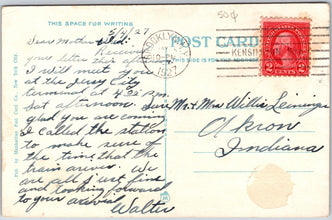 THIS SPACE FOR WRITING
5/4/27
50¢
Dear Mother & Dad. Received
your letter this afternoon
I will meet you
at the Jersey City
terminal at 4:23 p.m.
Sat afternoon. Sure
glad you are coming
I called the station
to make sure of
the time that the
train arrives. We
are all just fine
and looking forward
to your arrival
Walter
POST CARD
BROOKLYN
1927
2 CENTS 2
Mr & Mrs Willis Leininger
Akron
Indiana